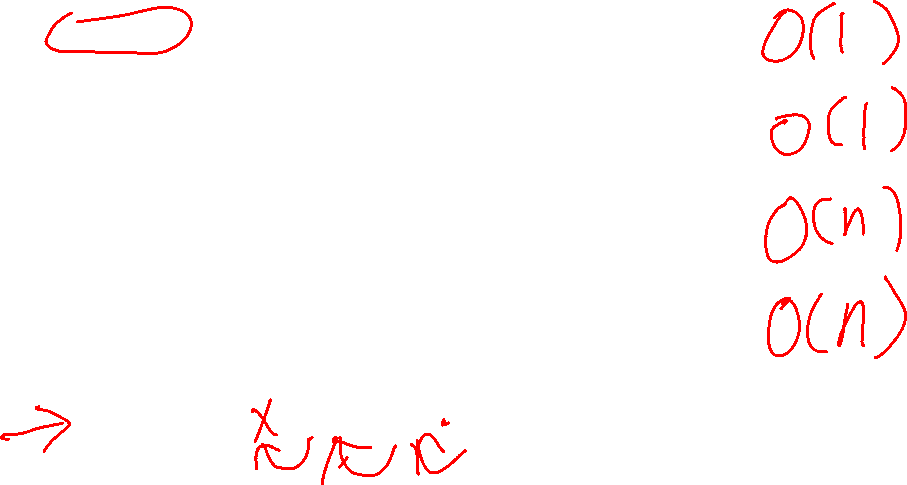 O(1)
O(1)
O(n)
O(n)
x